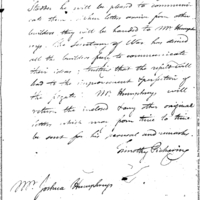 he will be pleased to communicate
them. When letters arrive from other
builders they will be handed to Mr Humph
reys. The Secretary of War has desired
all the builders freely to communicate
their ideas; trusting that the result will
lead to the improvement & perfection of
the frigates. Mr. Humphreys will
return the inclosed & any other original
letters which may from time to time
be sent for his perusal and remark.
Timothy Pickering
Mr. Joshua Humphreys